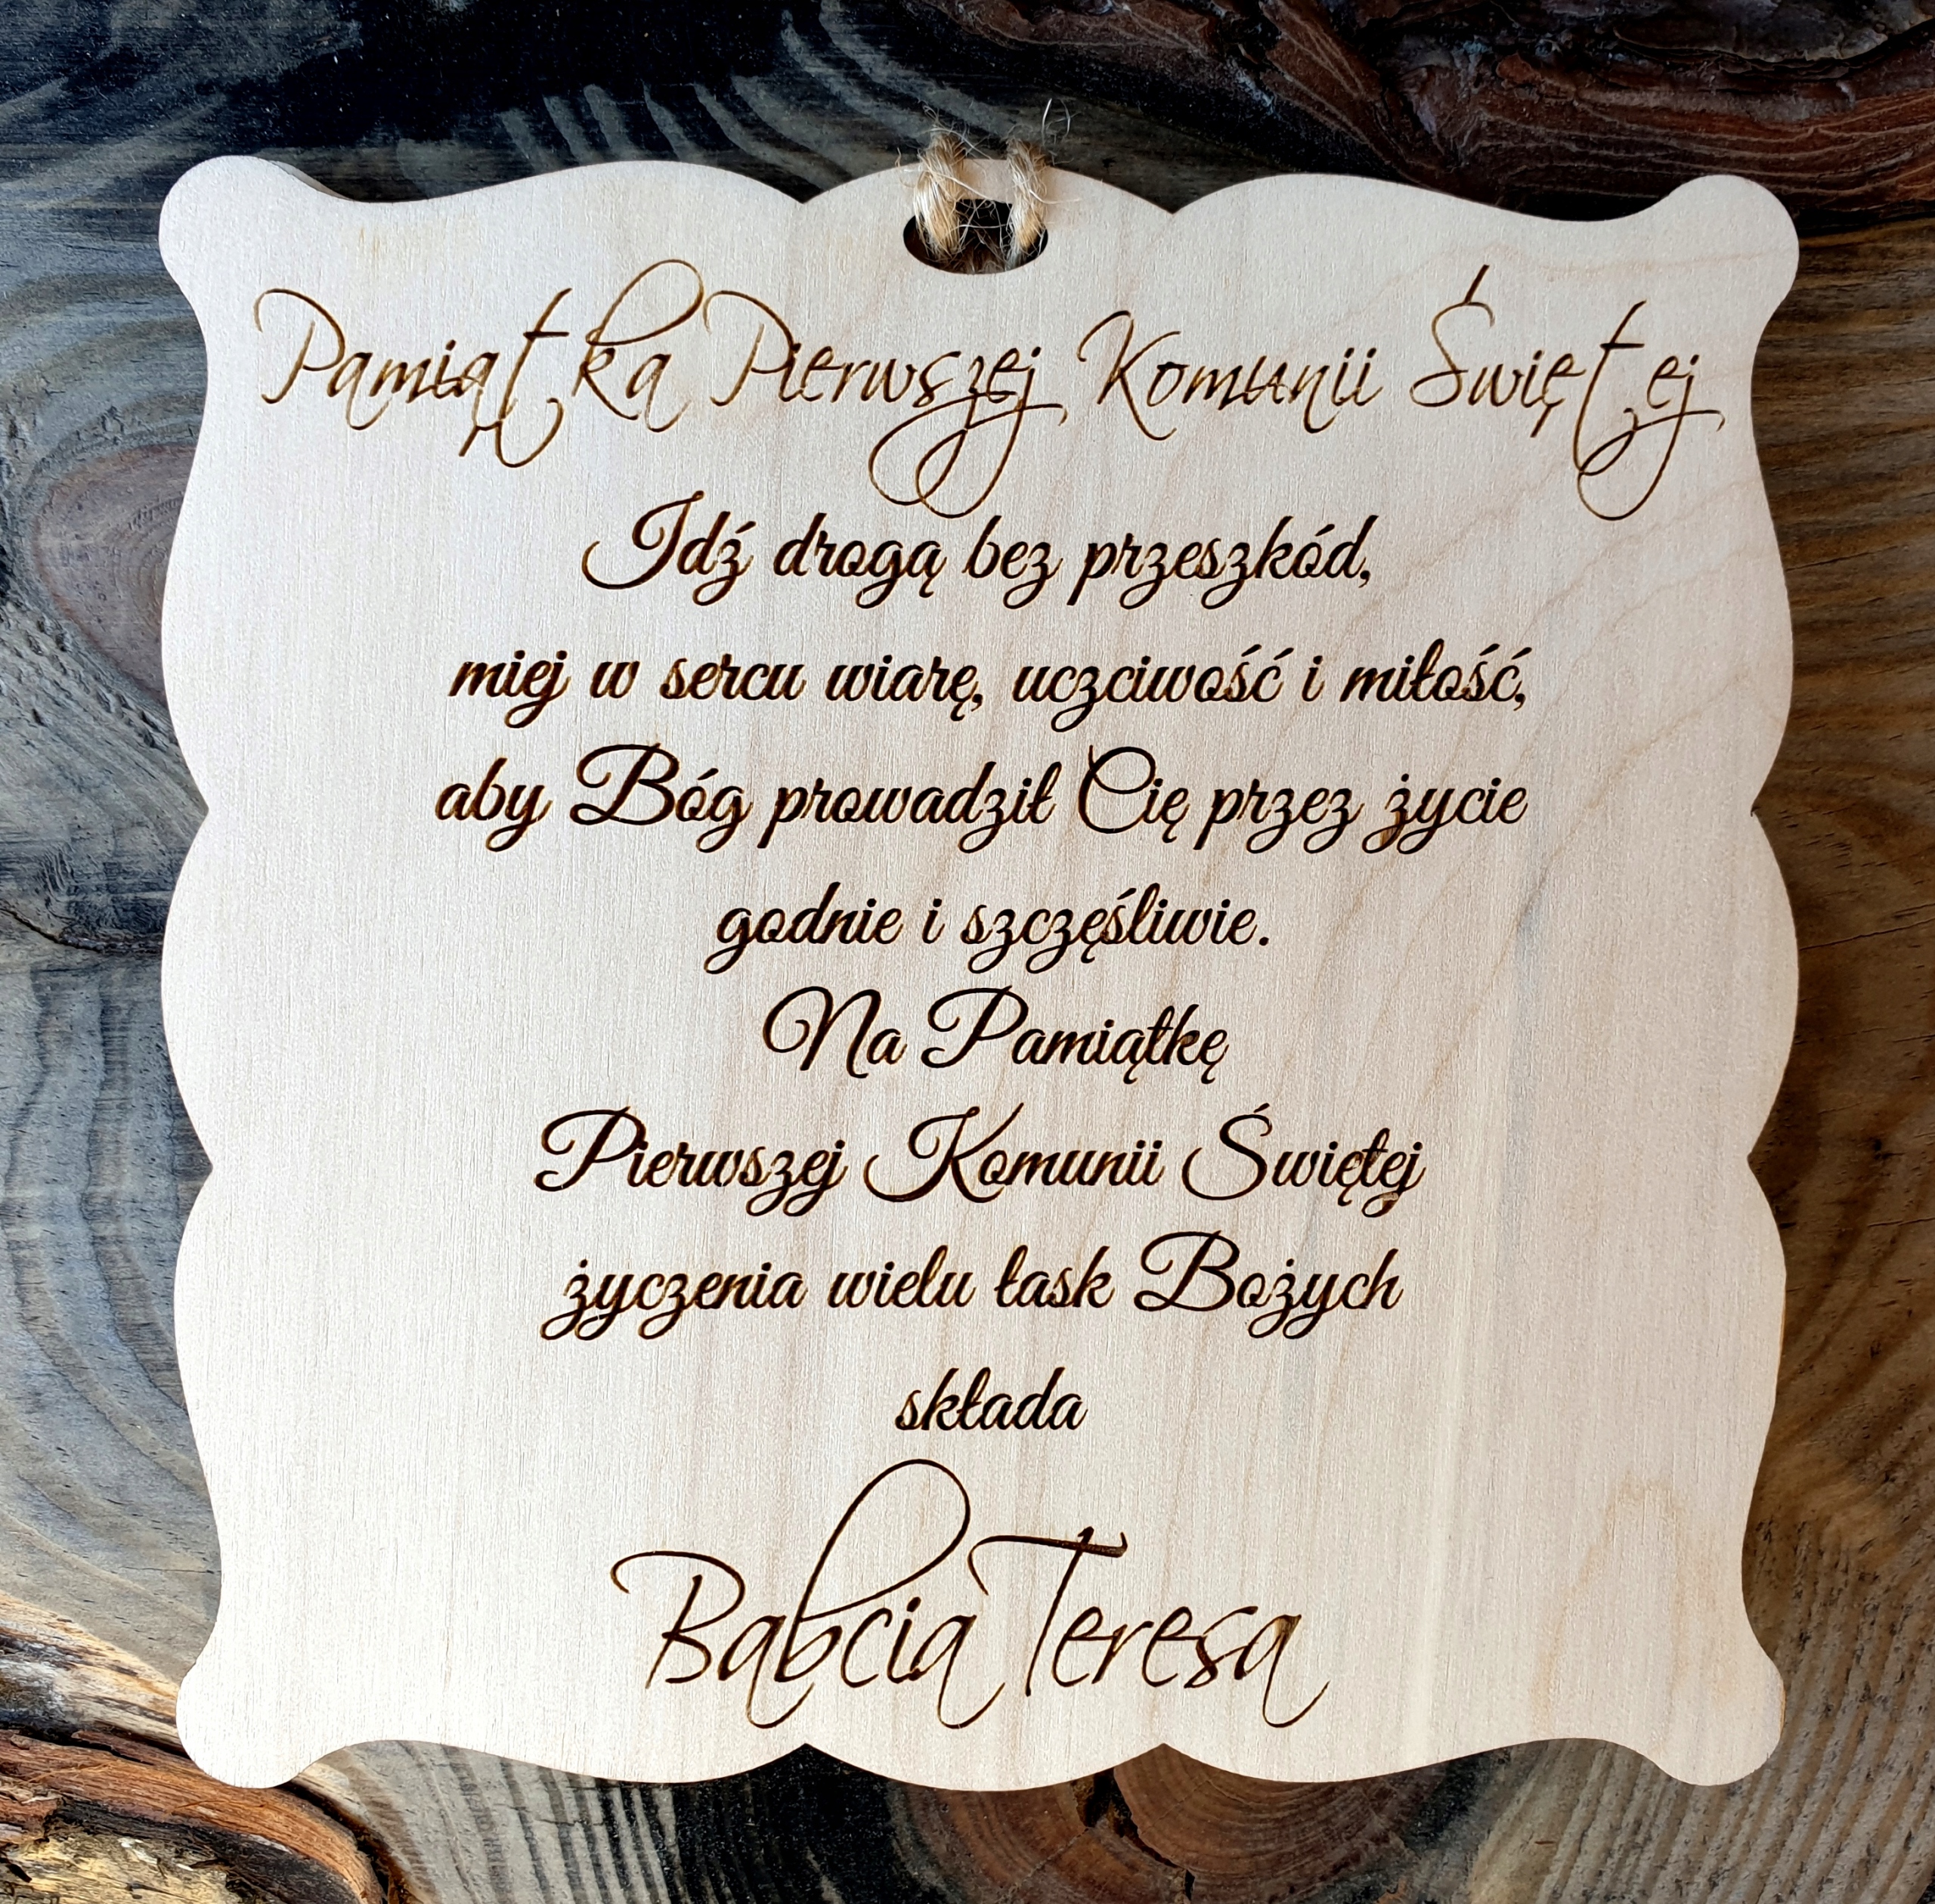 Pamiątka Pierwszej Komunii Świętej
Idź drogą bez przeszkód,
miej w sercu wiarę, uczciwość i miłość,
aby Bóg prowadził Cię przez życie
godnie i szczęśliwie.
Na Pamiątkę
Pierwszej Komunii Świętej
życzenia wielu łask Bożych
składa
Babcia Teresa